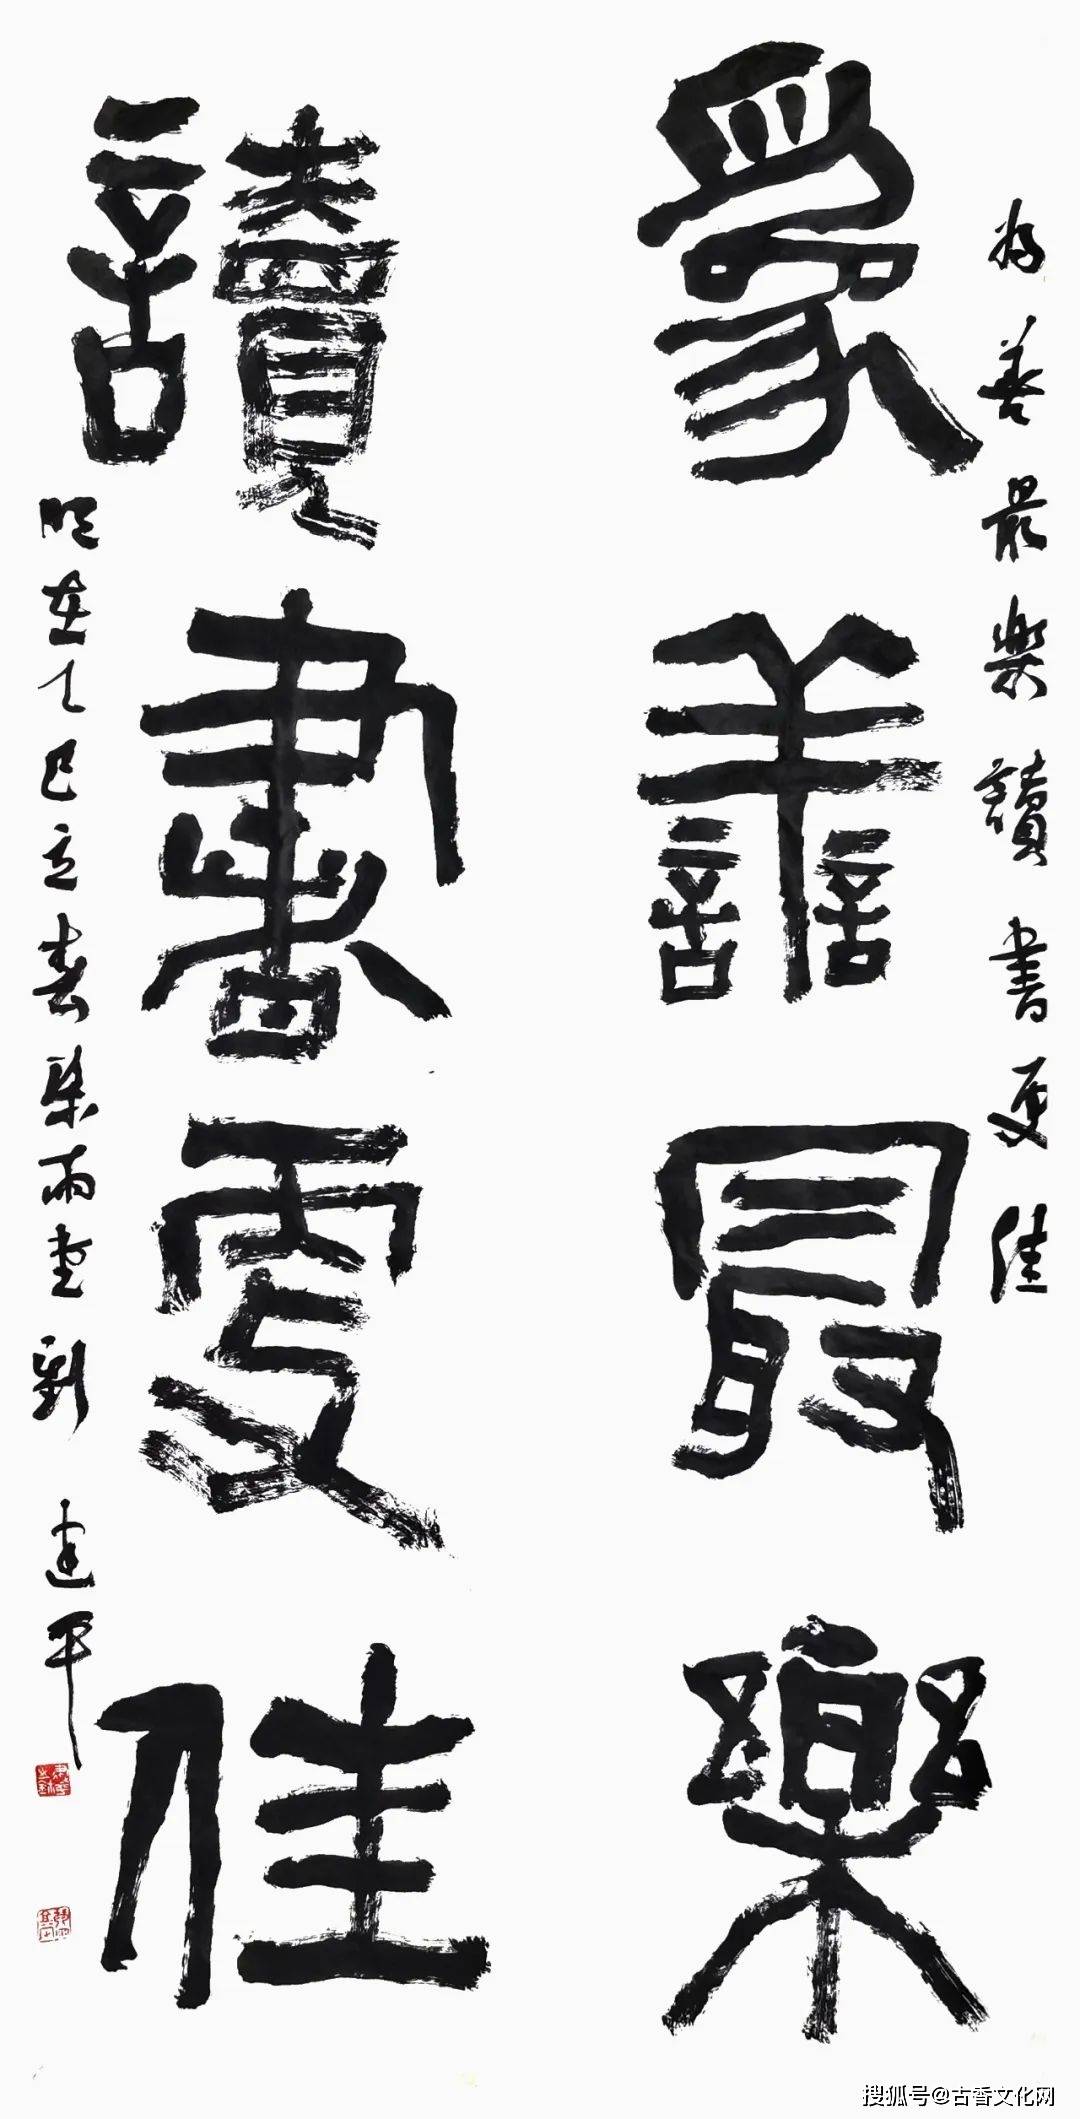 為善最樂讀書更佳
為善最樂
讀書更佳
時在乙巳立春雨堂劉建平
搜狐号@古香文化网